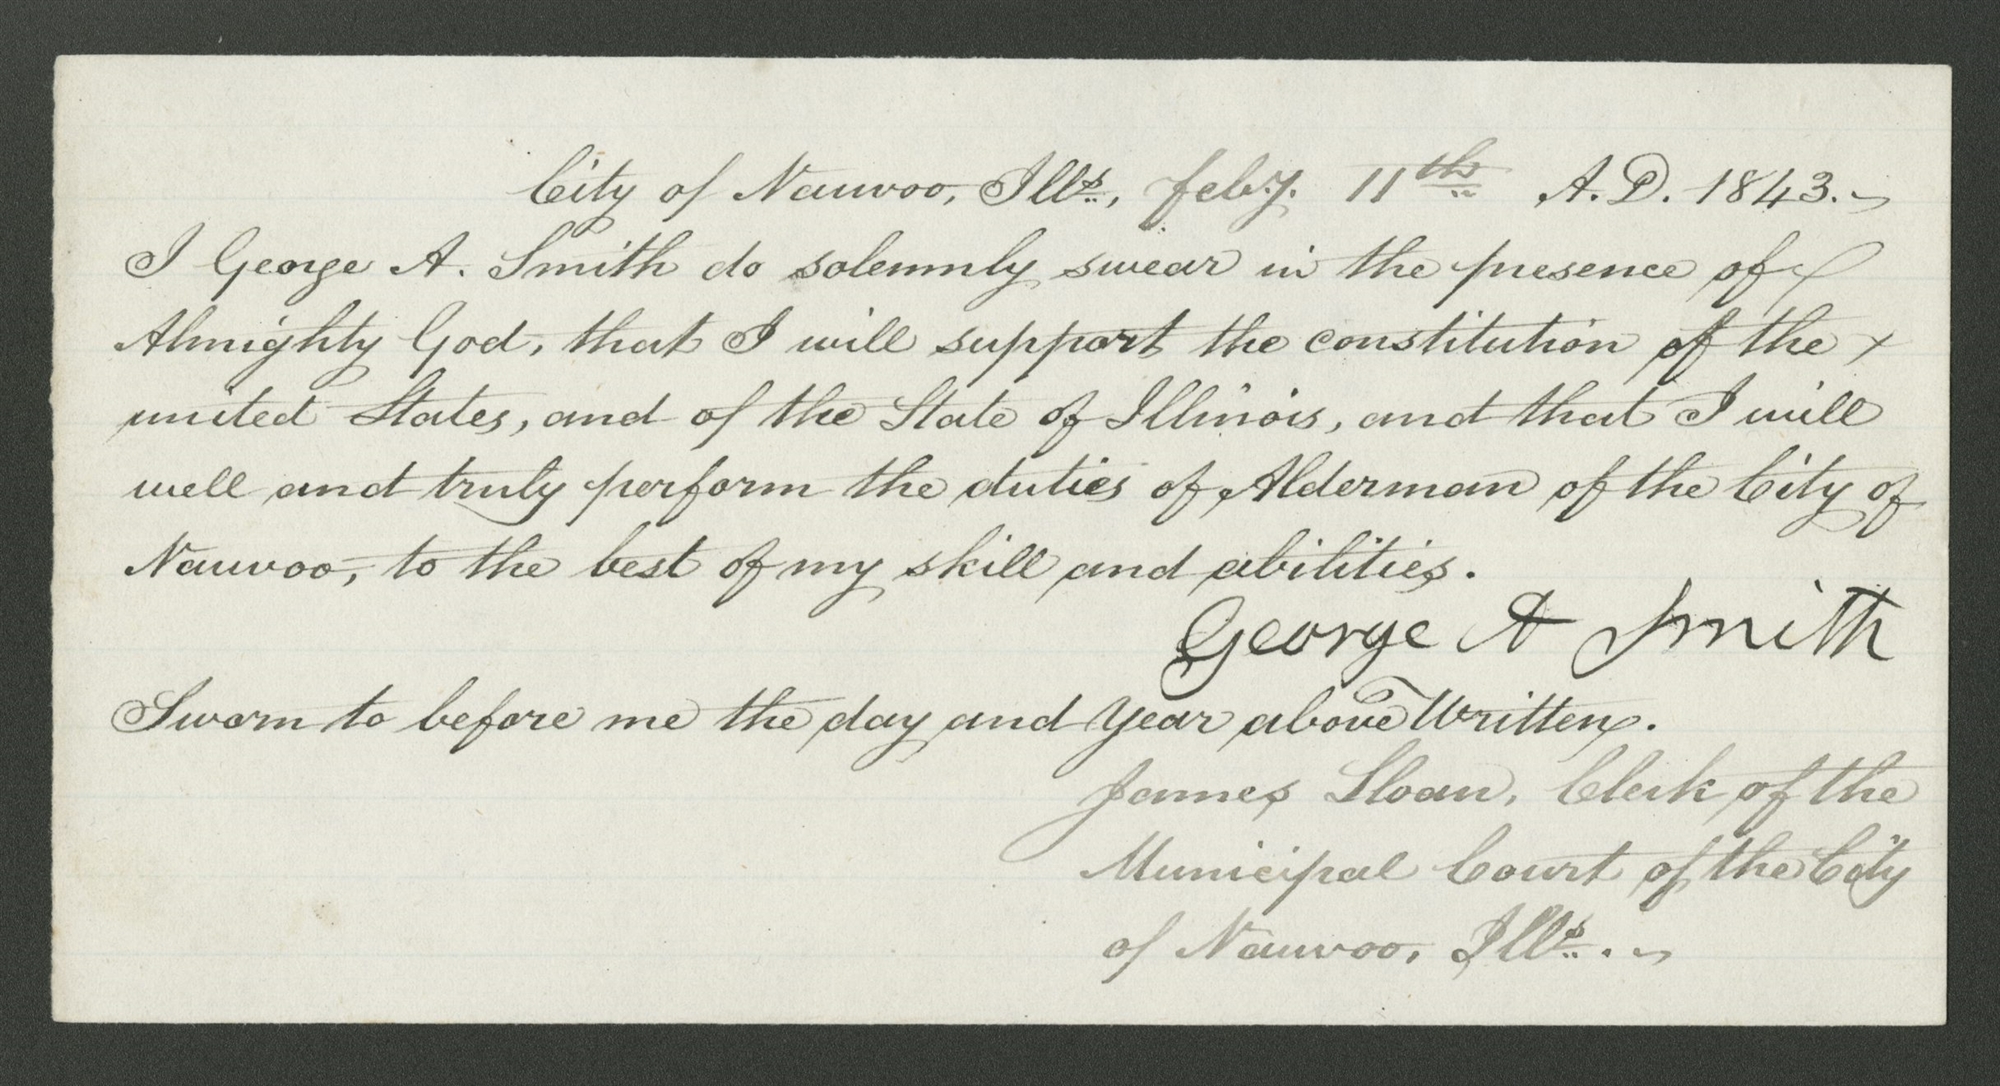 City of Nauvoo, Ills., Feby. 11th A.D. 1843.
I George A. Smith do solemnly swear in the presence of
Almighty God, that I will support the constitution of the
united States, and of the State of Illinois, and that I will
well and truly perform the duties of Alderman of the City of
Nauvoo, to the best of my skill and abilities.
George A Smith
Sworn to before me the day and year above Written.
James Sloan, Clerk of the
Municipal Court of the City
of Nauvoo, Ills..